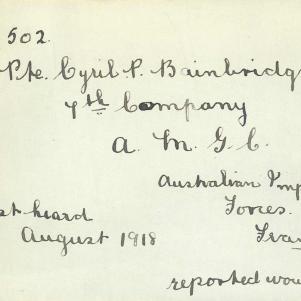 502.
Pte. Cyril P. Bainbridg
7th Company
A. M. G. C.
Australian Imp
Forces.
st heard
August 1918
Fra
reported wou